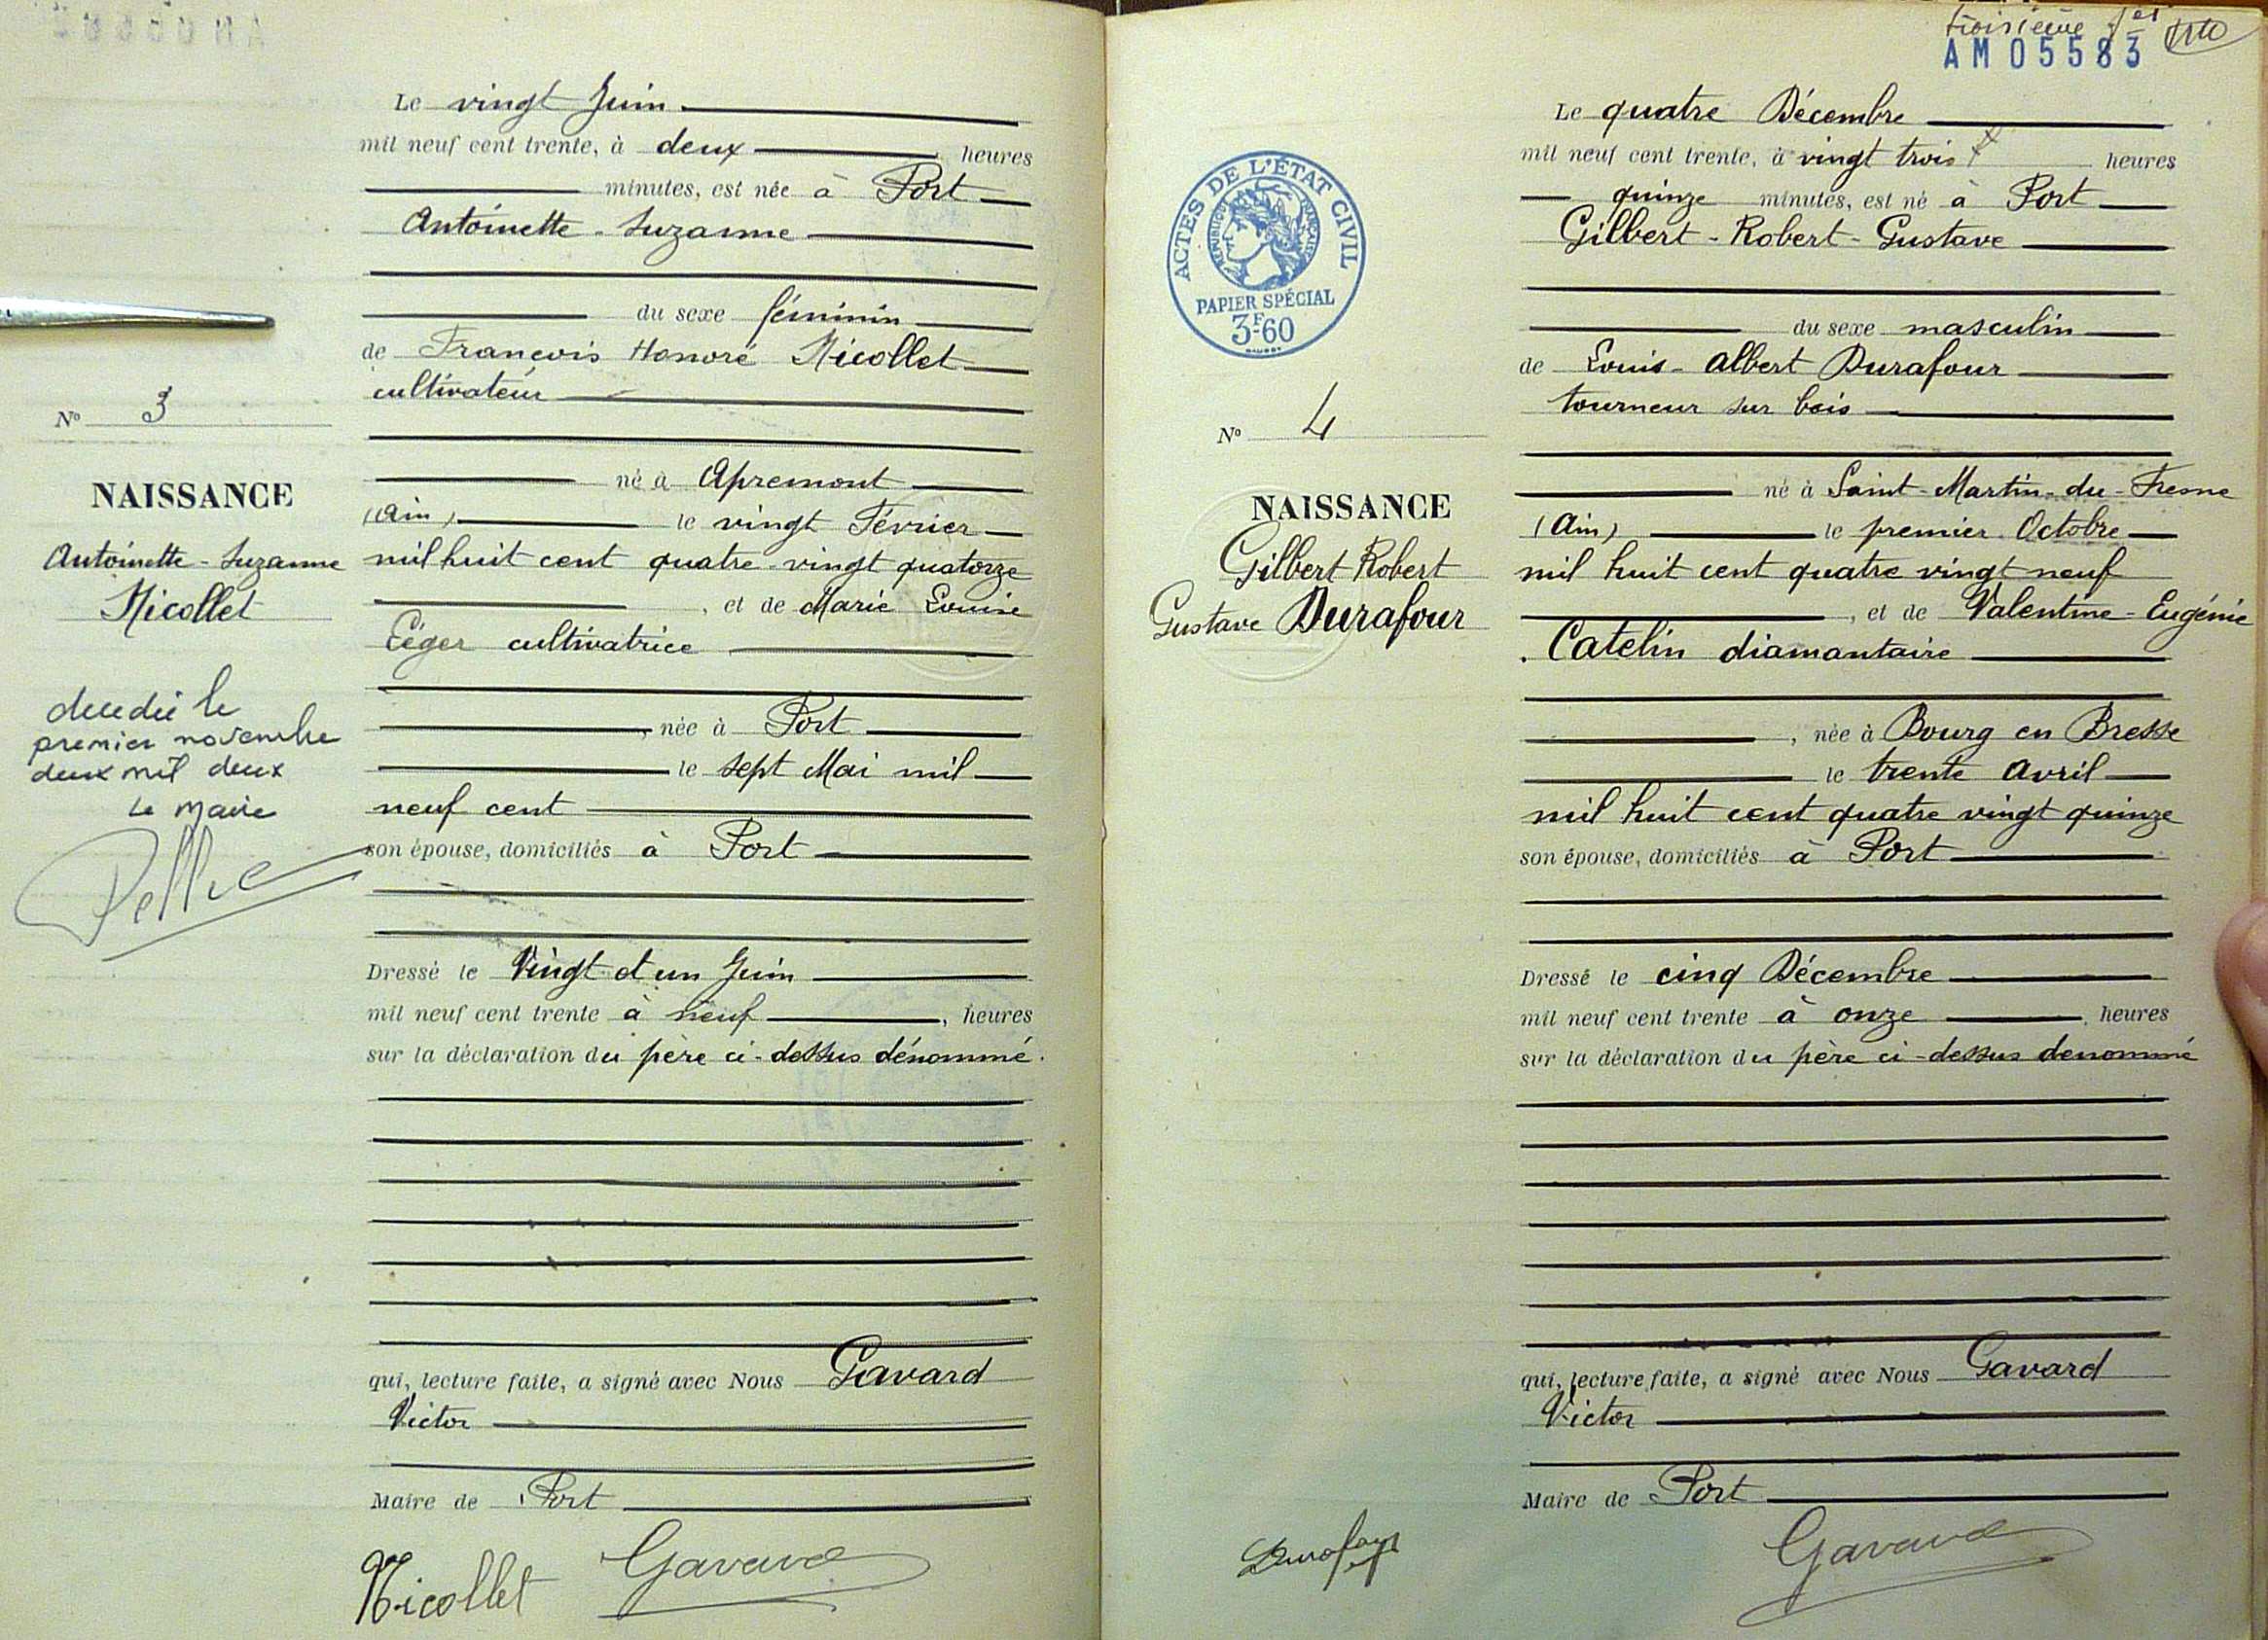 Le vingt Juin
mil neuf cent trente, à deux heures
minutes, est née à Port
Antoinette - Suzanne
du sexe féminin
de François Honoré Nicollet
cultivateur
né à Apremont
(Ain) le vingt Février
mil huit cent quatre-vingt quatorze
, et de Marie Louise
Léger cultivatrice
, née à Port
le sept Mai mil
neuf cent
son épouse, domiciliés à Port
Dressé le Vingt et un Juin
mil neuf cent trente à neuf, heures
sur la déclaration du père ci-dessus dénommé.
qui, lecture faite, a signé avec Nous Gavard
Victor
Maire de Port
Nicollet Gavard
No 3
NAISSANCE
Antoinette - Suzanne
Nicollet
décédée le
premier novembre
deux mil deux
Le Maire
troisième
AM05583
Le quatre Décembre
mil neuf cent trente, à vingt trois heures
quinze minutes, est né à Port
Gilbert - Robert - Gustave
du sexe masculin
de Louis - Albert Durafour
tourneur sur bois
né à Saint-Martin-du-Fresne
(Ain) le premier Octobre
mil huit cent quatre vingt neuf
, et de Valentine - Eugénie
Catelin diamantaire
, née à Bourg en Bresse
le trente Avril
mil huit cent quatre vingt quinze
son épouse, domiciliés à Port
Dressé le cinq Décembre
mil neuf cent trente à onze heures
sur la déclaration du père ci-dessus dénommé
qui, lecture faite, a signé avec Nous Gavard
Victor
Maire de Port
Durafour Gavard
ACTES DE L'ÉTAT CIVIL
RÉPUBLIQUE FRANÇAISE
PAPIER SPÉCIAL
3F60
No 4
NAISSANCE
Gilbert Robert
Gustave Durafour